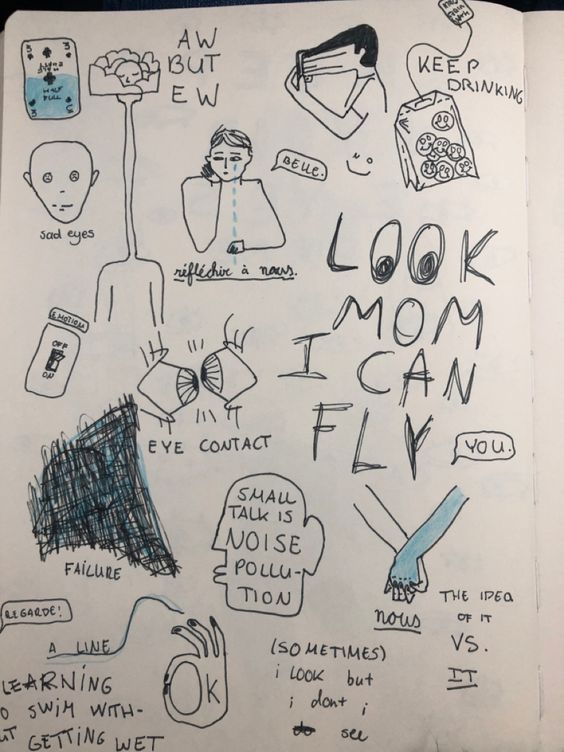 3
3
HALF
FULL
HALF
FULL
3
3
AW
BUT
EW
KEEP
DRINKING
BELLE.
sad eyes
réfléchir à nous.
LOOK
MOM
I CAN
FLY
EMOTION
OFF
ON
EYE CONTACT
YOU.
SMALL
TALK IS
NOISE
POLLU-
TION
FAILURE
nous
THE IDEA
OF IT
VS.
IT
REGARDE!
A LINE
OK
LEARNING
SWIM WITH-
GETTING WET
(SOMETIMES)
i LOOK but
i dont i
see